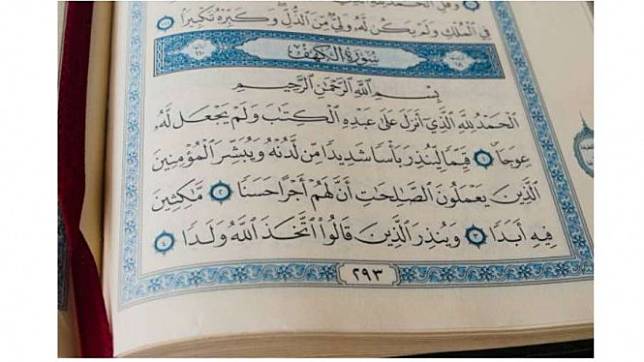 وَقُلِ ٱلْحَمْدُ لِلَّهِ
فِي ٱلْمُلْكِ وَلَمْ يَكُن لَّهُۥ وَلِيٌّ مِّنَ ٱلذُّلِّ وَكَبِّرْهُ تَكْبِيرًا
سُورَةُ الْكَهْفِ
بِسْمِ ٱللَّهِ ٱلرَّحْمَٰنِ ٱلرَّحِيمِ
ٱلْحَمْدُ لِلَّهِ ٱلَّذِيٓ أَنزَلَ عَلَىٰ عَبْدِهِ ٱلْكِتَٰبَ وَلَمْ يَجْعَل لَّهُۥ
عِوَجَا ۝١ قَيِّمًا لِّيُنذِرَ بَأْسًا شَدِيدًا مِّن لَّدُنْهُ وَيُبَشِّرَ ٱلْمُؤْمِنِينَ
ٱلَّذِينَ يَعْمَلُونَ ٱلصَّٰلِحَٰتِ أَنَّ لَهُمْ أَجْرًا حَسَنًا ۝٢ مَّٰكِثِينَ
فِيهِ أَبَدًا ۝٣ وَيُنذِرَ ٱلَّذِينَ قَالُوا۟ ٱتَّخَذَ ٱللَّهُ وَلَدًا ۝٤
٢٩٣